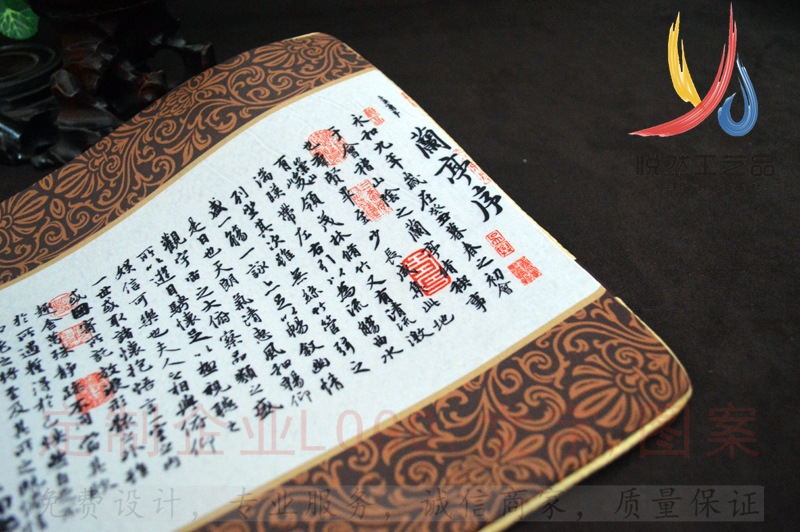 蘭亭序
永和九年歲在癸丑暮春之初會
于會稽山陰之蘭亭脩稧事
也群賢畢至少長咸集此地
有峻領茂林脩竹又有清流激
湍暎帶左右引以為流觴曲水
列坐其次雖無絲竹管弦之
盛一觴一詠亦足以暢敘幽情
是日也天朗氣清惠風和暢仰
觀宇宙之大俯察品類之盛
所以遊目騁懷足以極視聽之
娛信可樂也夫人之相與俯仰
一世或取諸懷抱悟言一室之內
或因寄所託放浪形骸之外雖
趣舍萬殊靜躁不同當其欣
於所遇暫得於己快然自足
老之將至及其所之既
悦然工艺品
定制企业LOGO 图案
免费设计，专业服务，诚信商家，质量保证